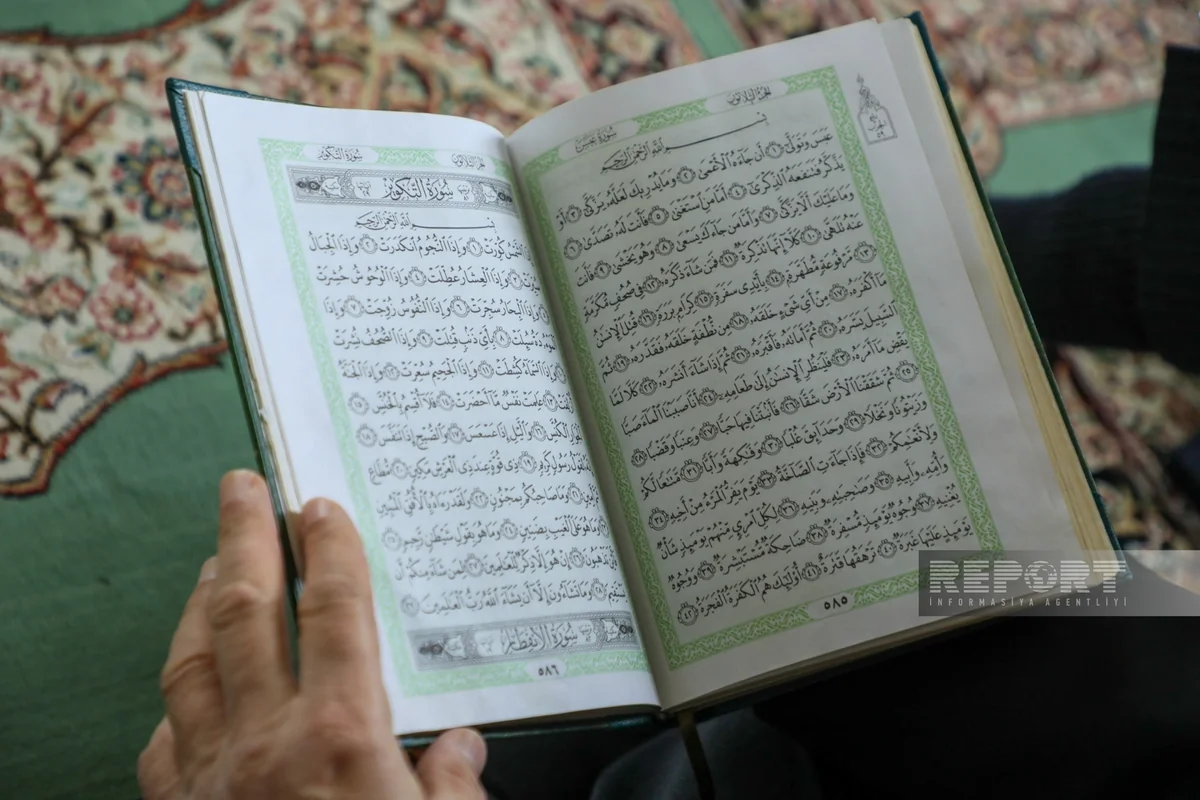 الجزء الثلاثون سورة عبس
بِسْمِ اللَّهِ الرَّحْمَٰنِ الرَّحِيمِ
عَبَسَ وَتَوَلَّىٰ ١ أَن جَاءَهُ الْأَعْمَىٰ ٢ وَمَا يُدْرِيكَ لَعَلَّهُ يَزَّكَّىٰ ٣ أَوْ
يَذَّكَّرُ فَتَنفَعَهُ الذِّكْرَىٰ ٤ أَمَّا مَنِ اسْتَغْنَىٰ ٥ فَأَنتَ لَهُ تَصَدَّىٰ ٦
وَمَا عَلَيْكَ أَلَّا يَزَّكَّىٰ ٧ وَأَمَّا مَن جَاءَكَ يَسْعَىٰ ٨ وَهُوَ يَخْشَىٰ ٩ فَأَنتَ
عَنْهُ تَلَهَّىٰ ١٠ كَلَّا إِنَّهَا تَذْكِرَةٌ ١١ فَمَن شَاءَ ذَكَرَهُ ١٢ فِي صُحُفٍ مُّكَرَّمَةٍ
١٣ مَّرْفُوعَةٍ مُّطَهَّرَةٍ ١٤ بِأَيْدِي سَفَرَةٍ ١٥ كِرَامٍ بَرَرَةٍ ١٦ قُتِلَ الْإِنسَٰنُ
مَا أَكْفَرَهُ ١٧ مِنْ أَيِّ شَيْءٍ خَلَقَهُ ١٨ مِن نُّطْفَةٍ خَلَقَهُ فَقَدَّرَهُ ١٩ ثُمَّ
السَّبِيلَ يَسَّرَهُ ٢٠ ثُمَّ أَمَاتَهُ فَأَقْبَرَهُ ٢١ ثُمَّ إِذَا شَاءَ أَنشَرَهُ ٢٢ كَلَّا لَمَّا
يَقْضِ مَا أَمَرَهُ ٢٣ فَلْيَنظُرِ الْإِنسَٰنُ إِلَىٰ طَعَامِهِ ٢٤ أَنَّا صَبَبْنَا الْمَاءَ صَبًّا
٢٥ ثُمَّ شَقَقْنَا الْأَرْضَ شَقًّا ٢٦ فَأَنبَتْنَا فِيهَا حَبًّا ٢٧ وَعِنَبًا وَقَضْبًا ٢٨
وَزَيْتُونًا وَنَخْلًا ٢٩ وَحَدَائِقَ غُلْبًا ٣٠ وَفَٰكِهَةً وَأَبًّا ٣١ مَّتَٰعًا لَّكُمْ
وَلِأَنْعَٰمِكُمْ ٣٢ فَإِذَا جَاءَتِ الصَّاخَّةُ ٣٣ يَوْمَ يَفِرُّ الْمَرْءُ مِنْ أَخِيهِ ٣٤
وَأُمِّهِ وَأَبِيهِ ٣٥ وَصَٰحِبَتِهِ وَبَنِيهِ ٣٦ لِكُلِّ امْرِئٍ مِّنْهُمْ يَوْمَئِذٍ شَأْنٌ
يُغْنِيهِ ٣٧ وُجُوهٌ يَوْمَئِذٍ مُّسْفِرَةٌ ٣٨ ضَاحِكَةٌ مُّسْتَبْشِرَةٌ ٣٩ وَوُجُوهٌ
يَوْمَئِذٍ عَلَيْهَا غَبَرَةٌ ٤٠ تَرْهَقُهَا قَتَرَةٌ ٤١ أُولَٰئِكَ هُمُ الْكَفَرَةُ الْفَجَرَةُ ٤٢
٥٨٥
الجزء الثلاثون سورة التكوير
سُورَةُ التَّكْوِيرِ
بِسْمِ اللَّهِ الرَّحْمَٰنِ الرَّحِيمِ
الشَّمْسُ كُوِّرَتْ ١ وَإِذَا النُّجُومُ انكَدَرَتْ ٢ وَإِذَا الْجِبَالُ
سُيِّرَتْ ٣ وَإِذَا الْعِشَارُ عُطِّلَتْ ٤ وَإِذَا الْوُحُوشُ حُشِرَتْ
٥ وَإِذَا الْبِحَارُ سُجِّرَتْ ٦ وَإِذَا النُّفُوسُ زُوِّجَتْ ٧ وَإِذَا
الْمَوْءُودَةُ سُئِلَتْ ٨ بِأَيِّ ذَنبٍ قُتِلَتْ ٩ وَإِذَا الصُّحُفُ نُشِرَتْ
١٠ وَإِذَا السَّمَاءُ كُشِطَتْ ١١ وَإِذَا الْجَحِيمُ سُعِّرَتْ ١٢ وَإِذَا الْجَنَّةُ
أُزْلِفَتْ ١٣ عَلِمَتْ نَفْسٌ مَّا أَحْضَرَتْ ١٤ فَلَا أُقْسِمُ بِالْخُنَّسِ ١٥
الْجَوَارِ الْكُنَّسِ ١٦ وَالَّيْلِ إِذَا عَسْعَسَ ١٧ وَالصُّبْحِ إِذَا تَنَفَّسَ ١٨
لَقَوْلُ رَسُولٍ كَرِيمٍ ١٩ ذِي قُوَّةٍ عِندَ ذِي الْعَرْشِ مَكِينٍ ٢٠ مُّطَاعٍ
ثَمَّ أَمِينٍ ٢١ وَمَا صَاحِبُكُم بِمَجْنُونٍ ٢٢ وَلَقَدْ رَءَاهُ بِالْأُفُقِ الْمُبِينِ
٢٣ وَمَا هُوَ عَلَى الْغَيْبِ بِضَنِينٍ ٢٤ وَمَا هُوَ بِقَوْلِ شَيْطَٰنٍ رَّجِيمٍ ٢٥
تَذْهَبُونَ ٢٦ إِنْ هُوَ إِلَّا ذِكْرٌ لِّلْعَٰلَمِينَ ٢٧ لِمَن شَاءَ مِنكُمْ أَن
يَسْتَقِيمَ ٢٨ وَمَا تَشَاءُونَ إِلَّا أَن يَشَاءَ اللَّهُ رَبُّ الْعَٰلَمِينَ ٢٩
سُورَةُ الِانفِطَارِ
٥٨٦
REPORT
İNFORMASİYA AGENTLİYİ